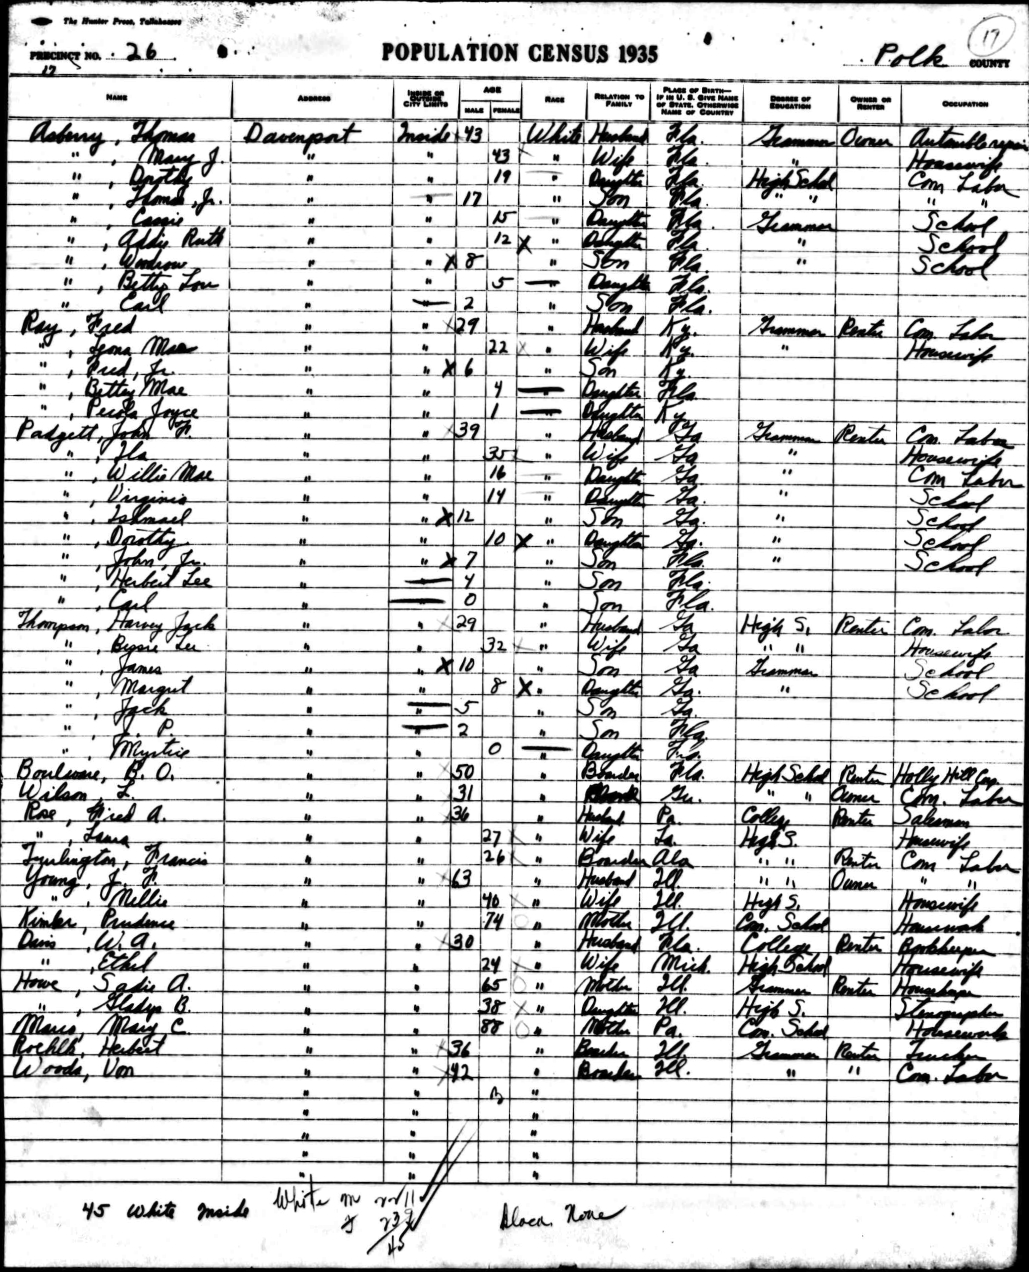 The Hunter Press, Tallahassee
17
PRECINCT NO. 26 POPULATION CENSUS 1935 Polk COUNTY
17
NAME ADDRESS INSIDE OR OUTSIDE CITY LIMITS AGE MALE FEMALE RACE RELATION TO FAMILY PLACE OF BIRTH— IF IN U. S. GIVE NAME OF STATE, OTHERWISE NAME OF COUNTRY DEGREE OF EDUCATION OWNER OR RENTER OCCUPATION
Asberry, Thomas Davenport Inside 43 White Husband Fla. Grammer Owner Automobile repair
" , Mary J. " " 43 " Wife Fla. " Housewife
" , Dorothy " " 19 " Daughter Fla High School Com. Labor
" , Thomas, Jr. " " 17 " Son Fla. " " " "
" , Cassie " " 15 " Daughter Fla. Grammer School
" , Addie Ruth " " 12 X " Daughter Fla. " School
" , Woodrow " " X 8 " Son Fla " School
" , Betty Lou " " 5 " Daughter Fla.
" Carl " 2 " Son Fla.
Ray, Fred " " 29 " Husband Ky. Grammer Renter Com. Labor
" , Mae " " 22 " Wife Ky. " Housewife
" , Fred, Jr. " " X 6 " Son Ky.
" , Betty Mae " " 4 " Daughter Fla.
" , Joyce " " 1 " Daughter Ky
Padgett, John F. " " 39 " Husband Ga Grammer Renter Com. Labor
" , Ila " " 35 " Wife Ga " Housewife
" , Willie Mae " " 16 " Daughter Ga. " Com Labor
" , Virginia " " 14 " Daughter Ga. " School
" , Ishmael " " X 12 " Son Ga. " School
" , Dorothy " " 10 X " Daughter Ga. " School
" , John, Jr. " " X 7 " Son Fla. " School
" , Herbert Lee " 4 " Son Fla.
" , Carl " 0 " Son Fla.
Thompson, Harvey Jack " " 29 " Husband Ga High S. Renter Com. Labor
" , Bessie Lee " " 32 " Wife Ga " " Housewife
" , James " " X 10 " Son Ga Grammer School
" , Margret " " 8 X " Daughter Ga. " School
" , Jack " " 5 " Son Ga.
" , J. P. " " 2 " Son Fla
" , Mystice " " 0 " Daughter Fla.
Boulware, B. O. " " 50 " Boarder Fla. High School Renter Holly Hill Corp.
Wilson, L. " " 31 " Ga. " " Owner Com. Labor
Rose, Fred A. " " 36 " Husband Pa. College Renter Salesman
" Laura " " 27 " Wife Ga. High S. Housewife
Turlington, Francis " " 26 " Boarder Ala " " Renter Com Labor
Young, J. F. " " 63 " Husband Ill. " " Owner " "
" , Nellie " " 40 " Wife Ill. High S. Housewife
Kinker, Prudence " " 74 " Mother Ill. Com. School Housework
Davis, W. A. " " 30 " Husband Fla. College Renter Bookkeeper
" , Ethel " " 24 " Wife Mich. High School Housewife
Howe, Sadie A. " " 65 " Mother Ill. Grammer Renter
" , Gladys B. " " 38 " Daughter Ill. High S. Stenographer
Mary C " " 88 " Mother Pa. Com. School Housework
Herbert " " 36 " Boarder Ill. Grammer Renter Trucker
Woods, Von " " 42 " Boarder Ill. " " Com. Labor
" " "
" " "
" " "
" " "
" " "
45 White Inside White M 22
F 23
45
None